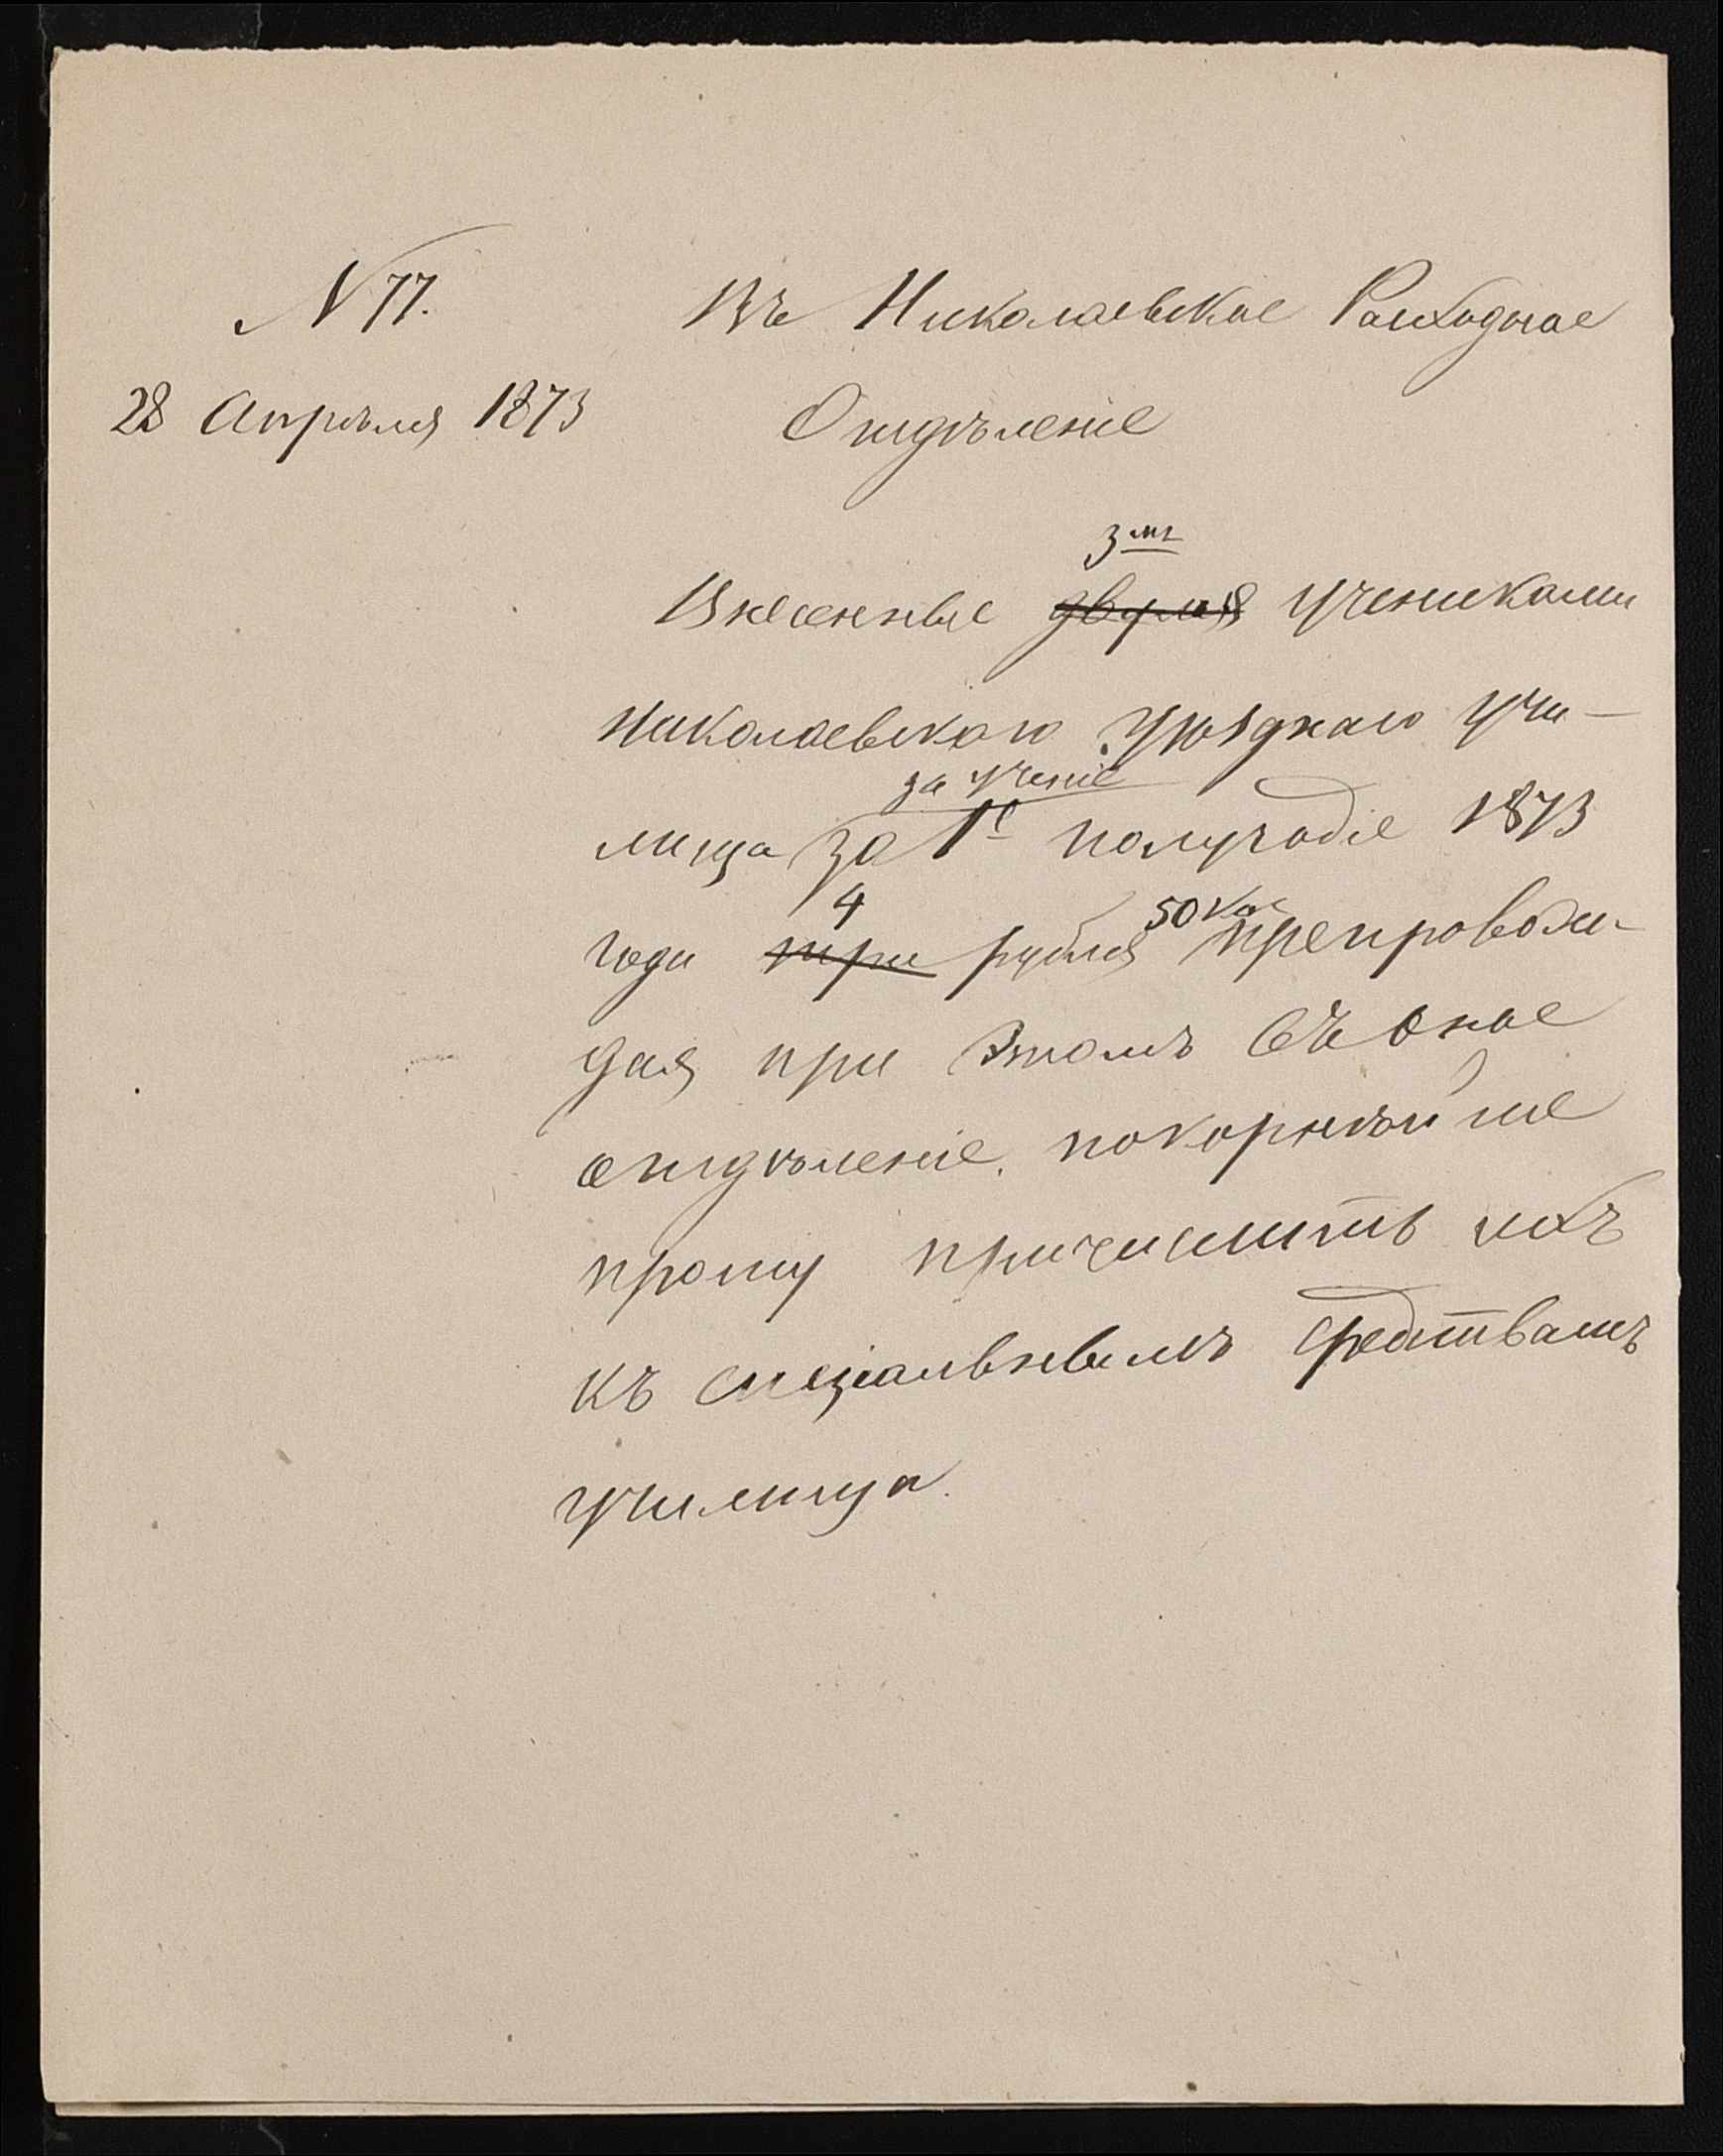 N 77.
28 Апрѣля 1873
Въ Николаевское Расходное
Отдѣленіе
3мя
Внесенные двумя учениками
Николаевскаго Уѣзднаго Учи-
за ученіе
лища за 1е полугодіе 1873
4 50 коп
года три рубля препровож-
дая при этомъ въ оное
отдѣленіе, покорнѣйше
прошу причислить ихъ
къ спеціальнымъ средствамъ
училища.